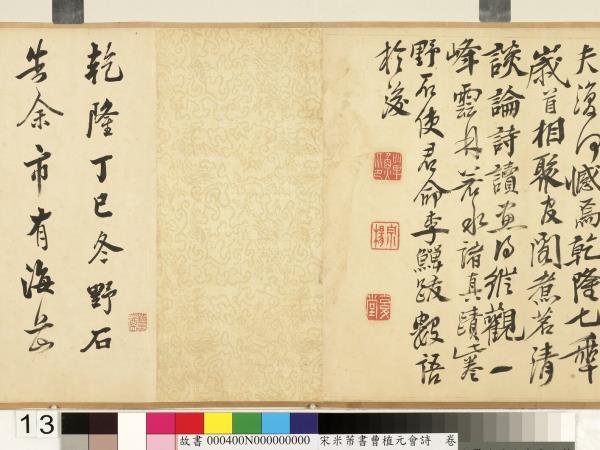 夫復何憾焉乾隆七年
歲首相聚官閣煮茗清
談論詩讀畫得縱觀一
峰雲林若水諸真蹟此卷
野石使君命李鱓跋數語
於後
乾隆丁巳冬野石
告余市有海岳
13
故書 000400N000000000 宋米芾書曹植元會詩 卷